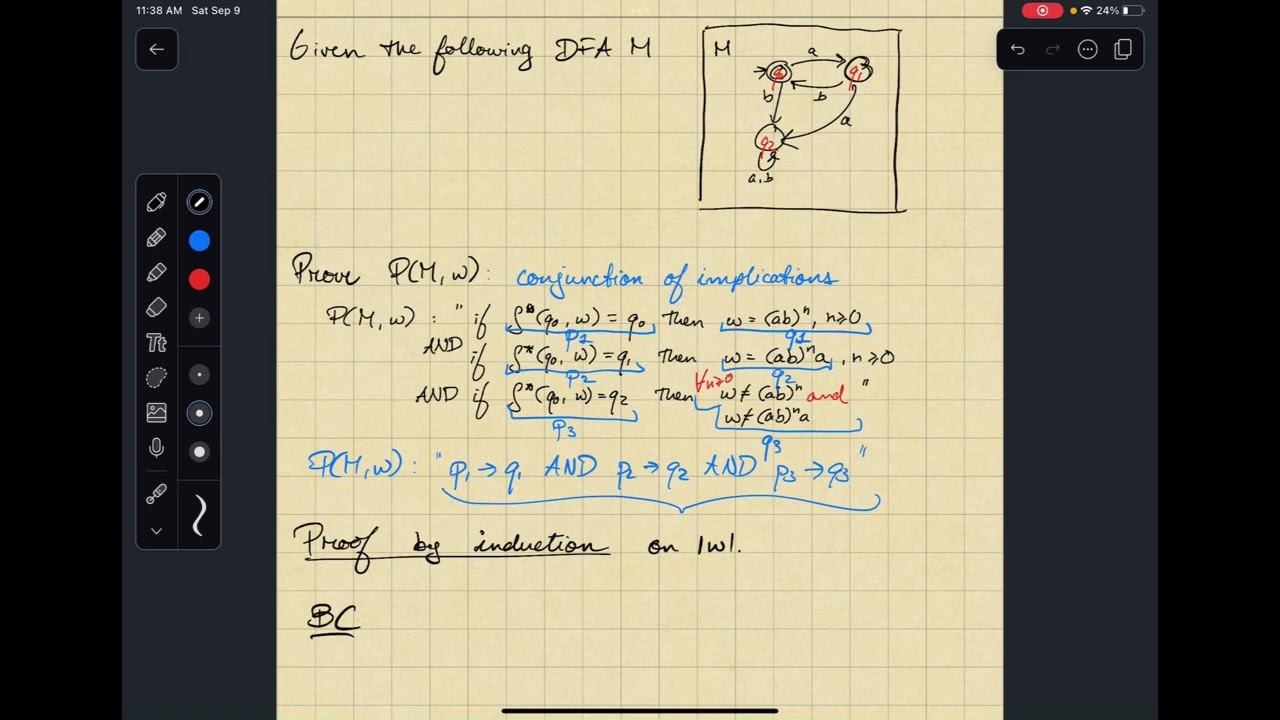 11:38 AM Sat Sep 9
24%
Given the following DFA M
M
a
q0
q1
b
b
a
q2
a,b
Tt
Prove P(M,w): conjunction of implications
P(M,w): " if δ*(q0,w) = q0 then w = (ab)^n, n≥0
p1 q1
AND if δ*(q0,w) = q1 then w = (ab)^n a, n≥0
p2 q2
AND if δ*(q0,w) = q2 then ∀n≥0 w ≠ (ab)^n and "
w ≠ (ab)^n a
p3 q3
P(M,w): " p1 → q1 AND p2 → q2 AND p3 → q3 "
Proof by induction on |w|.
BC